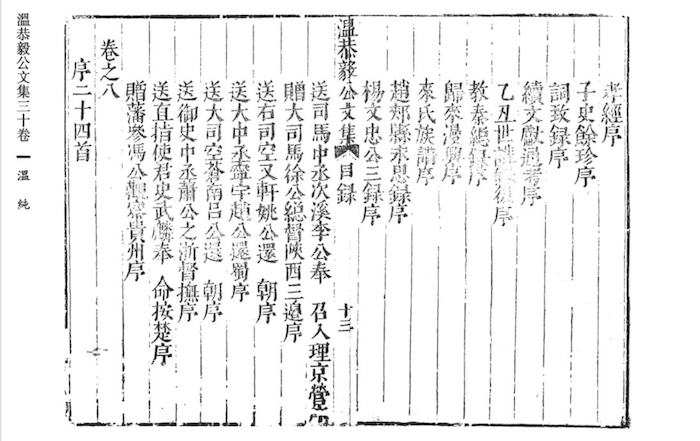 孝經序
子史餘珍序
詞致錄序
續文獻通考序
乙丑世序
教秦總錄序
歸來漫序
來氏族譜序
趙郟縣永思錄序
楊文忠公三錄序
溫恭毅公文集 目錄 十三
送司馬中丞次溪李公奉 召入理京營
贈大司馬徐公總督陝西三邊序
送右司空文軒姚公還 朝序
送大中丞霽宇趙公還蜀序
送大司空蒼南呂公還 朝序
送御史中丞蕭公之浙督撫序
送直指使君史武麟奉 命按楚序
贈藩參馮公貴州序
卷之八
序二十四首
溫恭毅公文集三十卷 溫 純